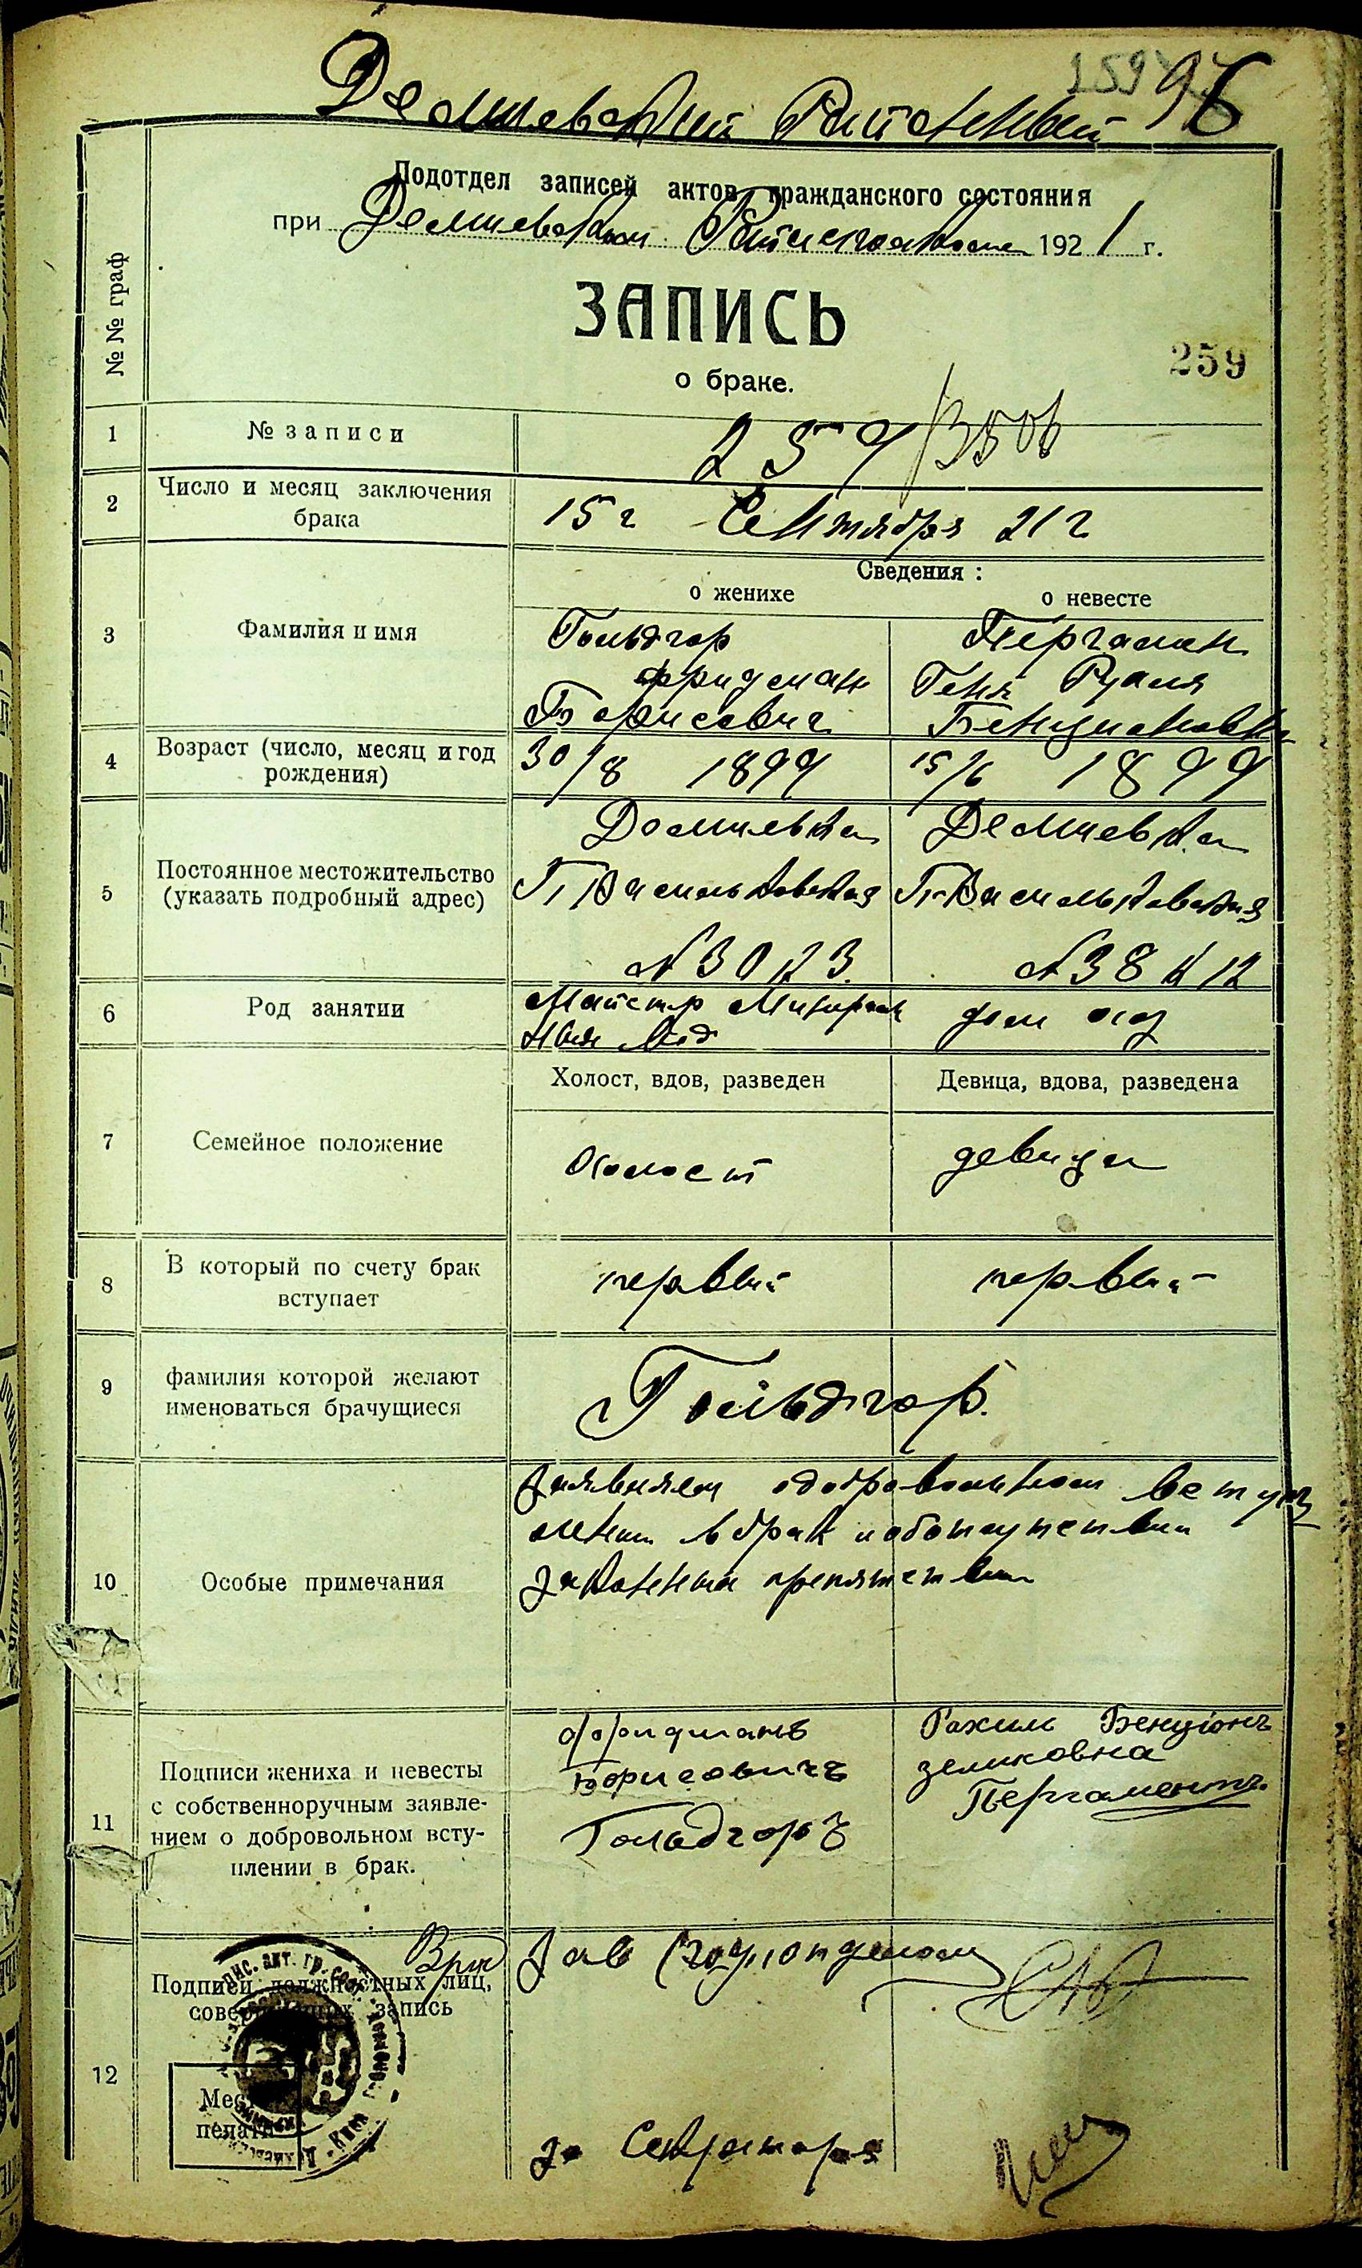 Демиевский Районный 96
Подотдел записей актов гражданского состояния
при Демиевском 1921 г.
ЗАПИСЬ
о браке.
259
№№ граф
1 № записи 259/3506
2 Число и месяц заключения
брака
15г Сентября 21 г
Сведения :
о женихе о невесте
3 Фамилия и имя
Гольдгор
Фридман
Борисович
Пергамен
Геня Рухля
Бенционовна
4 Возраст (число, месяц и год
рождения)
30/8 1899
15/6 1899
5 Постоянное местожительство
(указать подробный адрес)
Демиевка
Б Васильковская
№ 30 к 3.
Демиевка
Б Васильковская
№ 38 к 12
6 Род занятии
Майстер Минераль
ных Вод
дом хоз
Холост, вдов, разведен
Девица, вдова, разведена
7 Семейное положение
Холост
девица
8 В который по счету брак
вступает
первый
первый
9 фамилия которой желают
именоваться брачущиеся
Гольдгор.
10 Особые примечания
Заявляем одобровольном вступ
лении в брак и оботсутствии
законных препятствии
11 Подписи жениха и невесты
с собственноручным заявле-
нием о добровольном всту-
плении в брак.
Фридманъ
Борисовичъ
Гольдгоръ
Рахиль Бенціонъ
зеликовна
Пергаментъ.
12 Подписи должностных лиц,
совершивших запись
Место
печати
Врид Зав Подотделом
за Секретаря